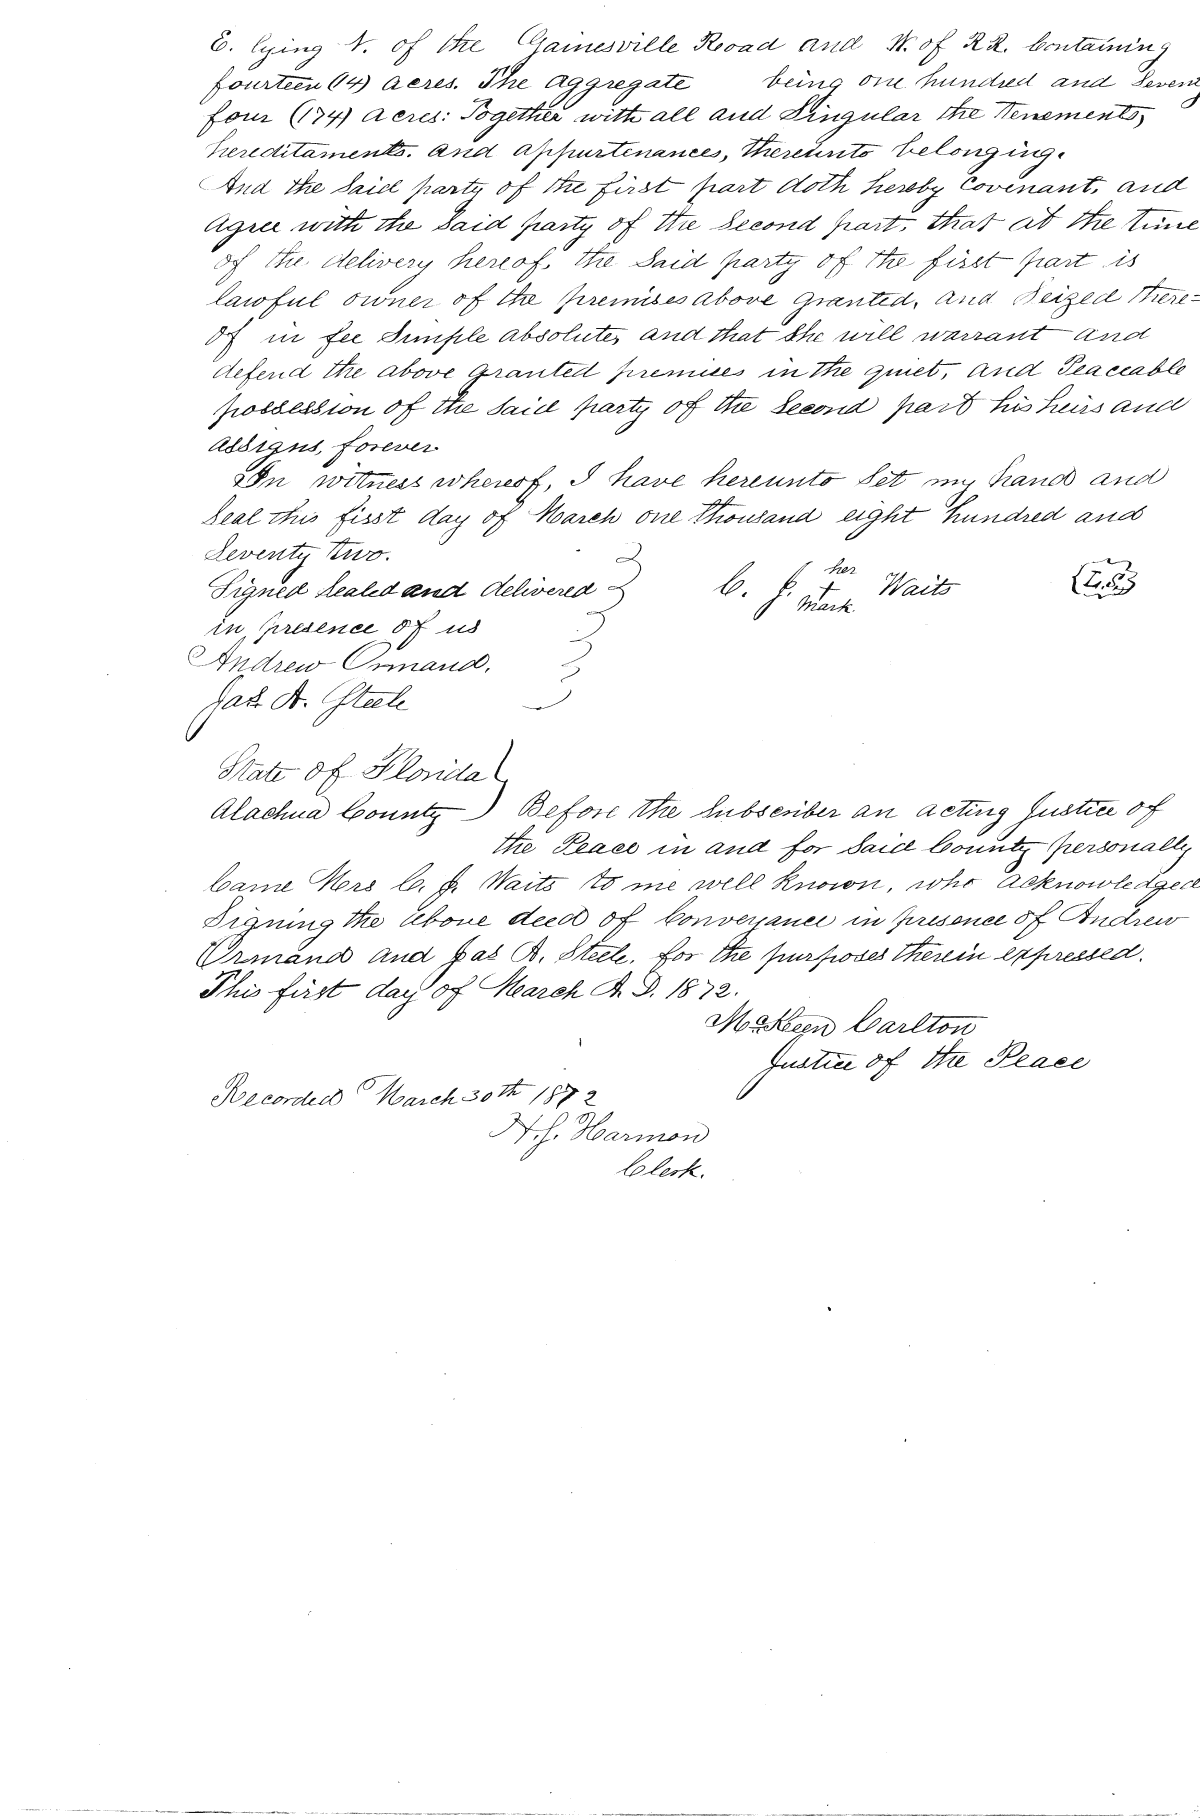 E. lying N. of the Gainesville Road and W. of R R. Containing
fourteen (14) acres. The aggregate being one hundred and Seventy
four (174) acres: Together with all and Singular the Tenements,
hereditaments. and appurtenances, thereunto belonging.
And the Said party of the first part doth hereby Covenant, and
agree with the Said party of the Second part, that at the time
of the delivery hereof, the Said party of the first part is
lawful owner of the premises above granted, and Seized there=
of in fee Simple absolute, and that She will warrant and
defend the above granted premises in the quiet, and Peaceable
possession of the Said party of the Second part his heirs and
assigns, forever
In witness whereof, I have hereunto Set my hand and
Seal this first day of March one thousand eight hundred and
Seventy two.
Signed Sealed and delivered C. J. her + mark Waits (L.S.)
in presence of us
Andrew Ormand.
Jas A. Steele
State of Florida
Alachua County Before the Subscriber an acting Justice of
the Peace in and for Said County personally
Came Mrs C. J. Waits to me well known, who acknowledged
Signing the above deed of Conveyance in presence of Andrew
Ormand and Jas A. Steele, for the purposes therein expressed.
This first day of March A. D. 1872.
McKeen Carlton
Justice of the Peace
Recorded March 30th 1872
H. S. Harmon
Clerk.